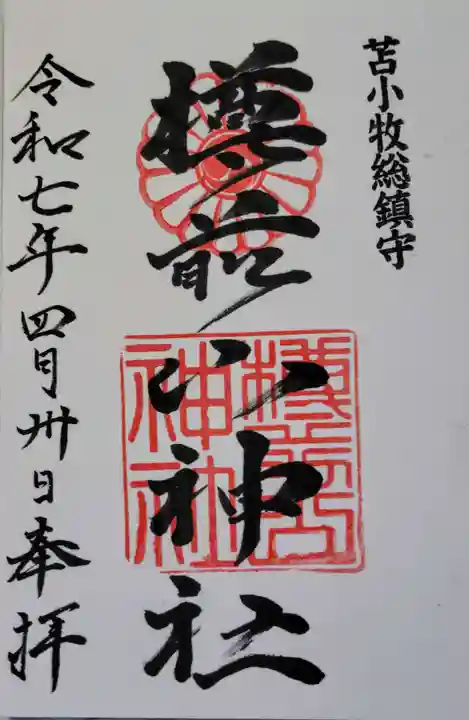 苫小牧総鎮守
樽前山神社
樽前山神社
令和七年四月卅日奉拝